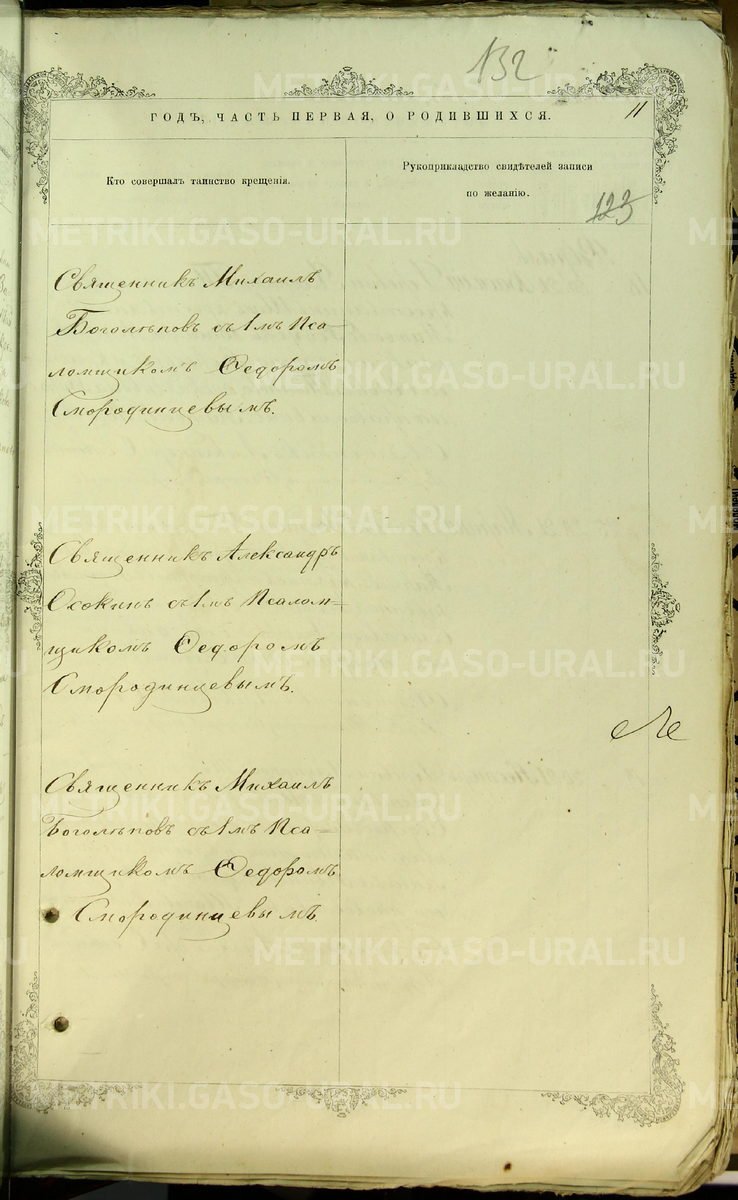 132
ГОДЪ, ЧАСТЬ ПЕРВАЯ, О РОДИВШИХСЯ.
11
Кто совершалъ таинство крещенія.
Рукоприкладство свидѣтелей записи
по желанію.
123
Священникъ Михаилъ
Боголѣповъ съ 1мъ Пса-
ломщикомъ Ѳедоромъ
Смородинцевымъ.
Священникъ Александръ
Охокинъ съ 1мъ Псалом=
щикомъ Ѳедоромъ
Смородинцевымъ.
Священникъ Михаилъ
Боголѣповъ съ 1мъ Пса-
ломщикомъ Ѳедоромъ
Смородинцевымъ
METRIKI.GASO-URAL.RU